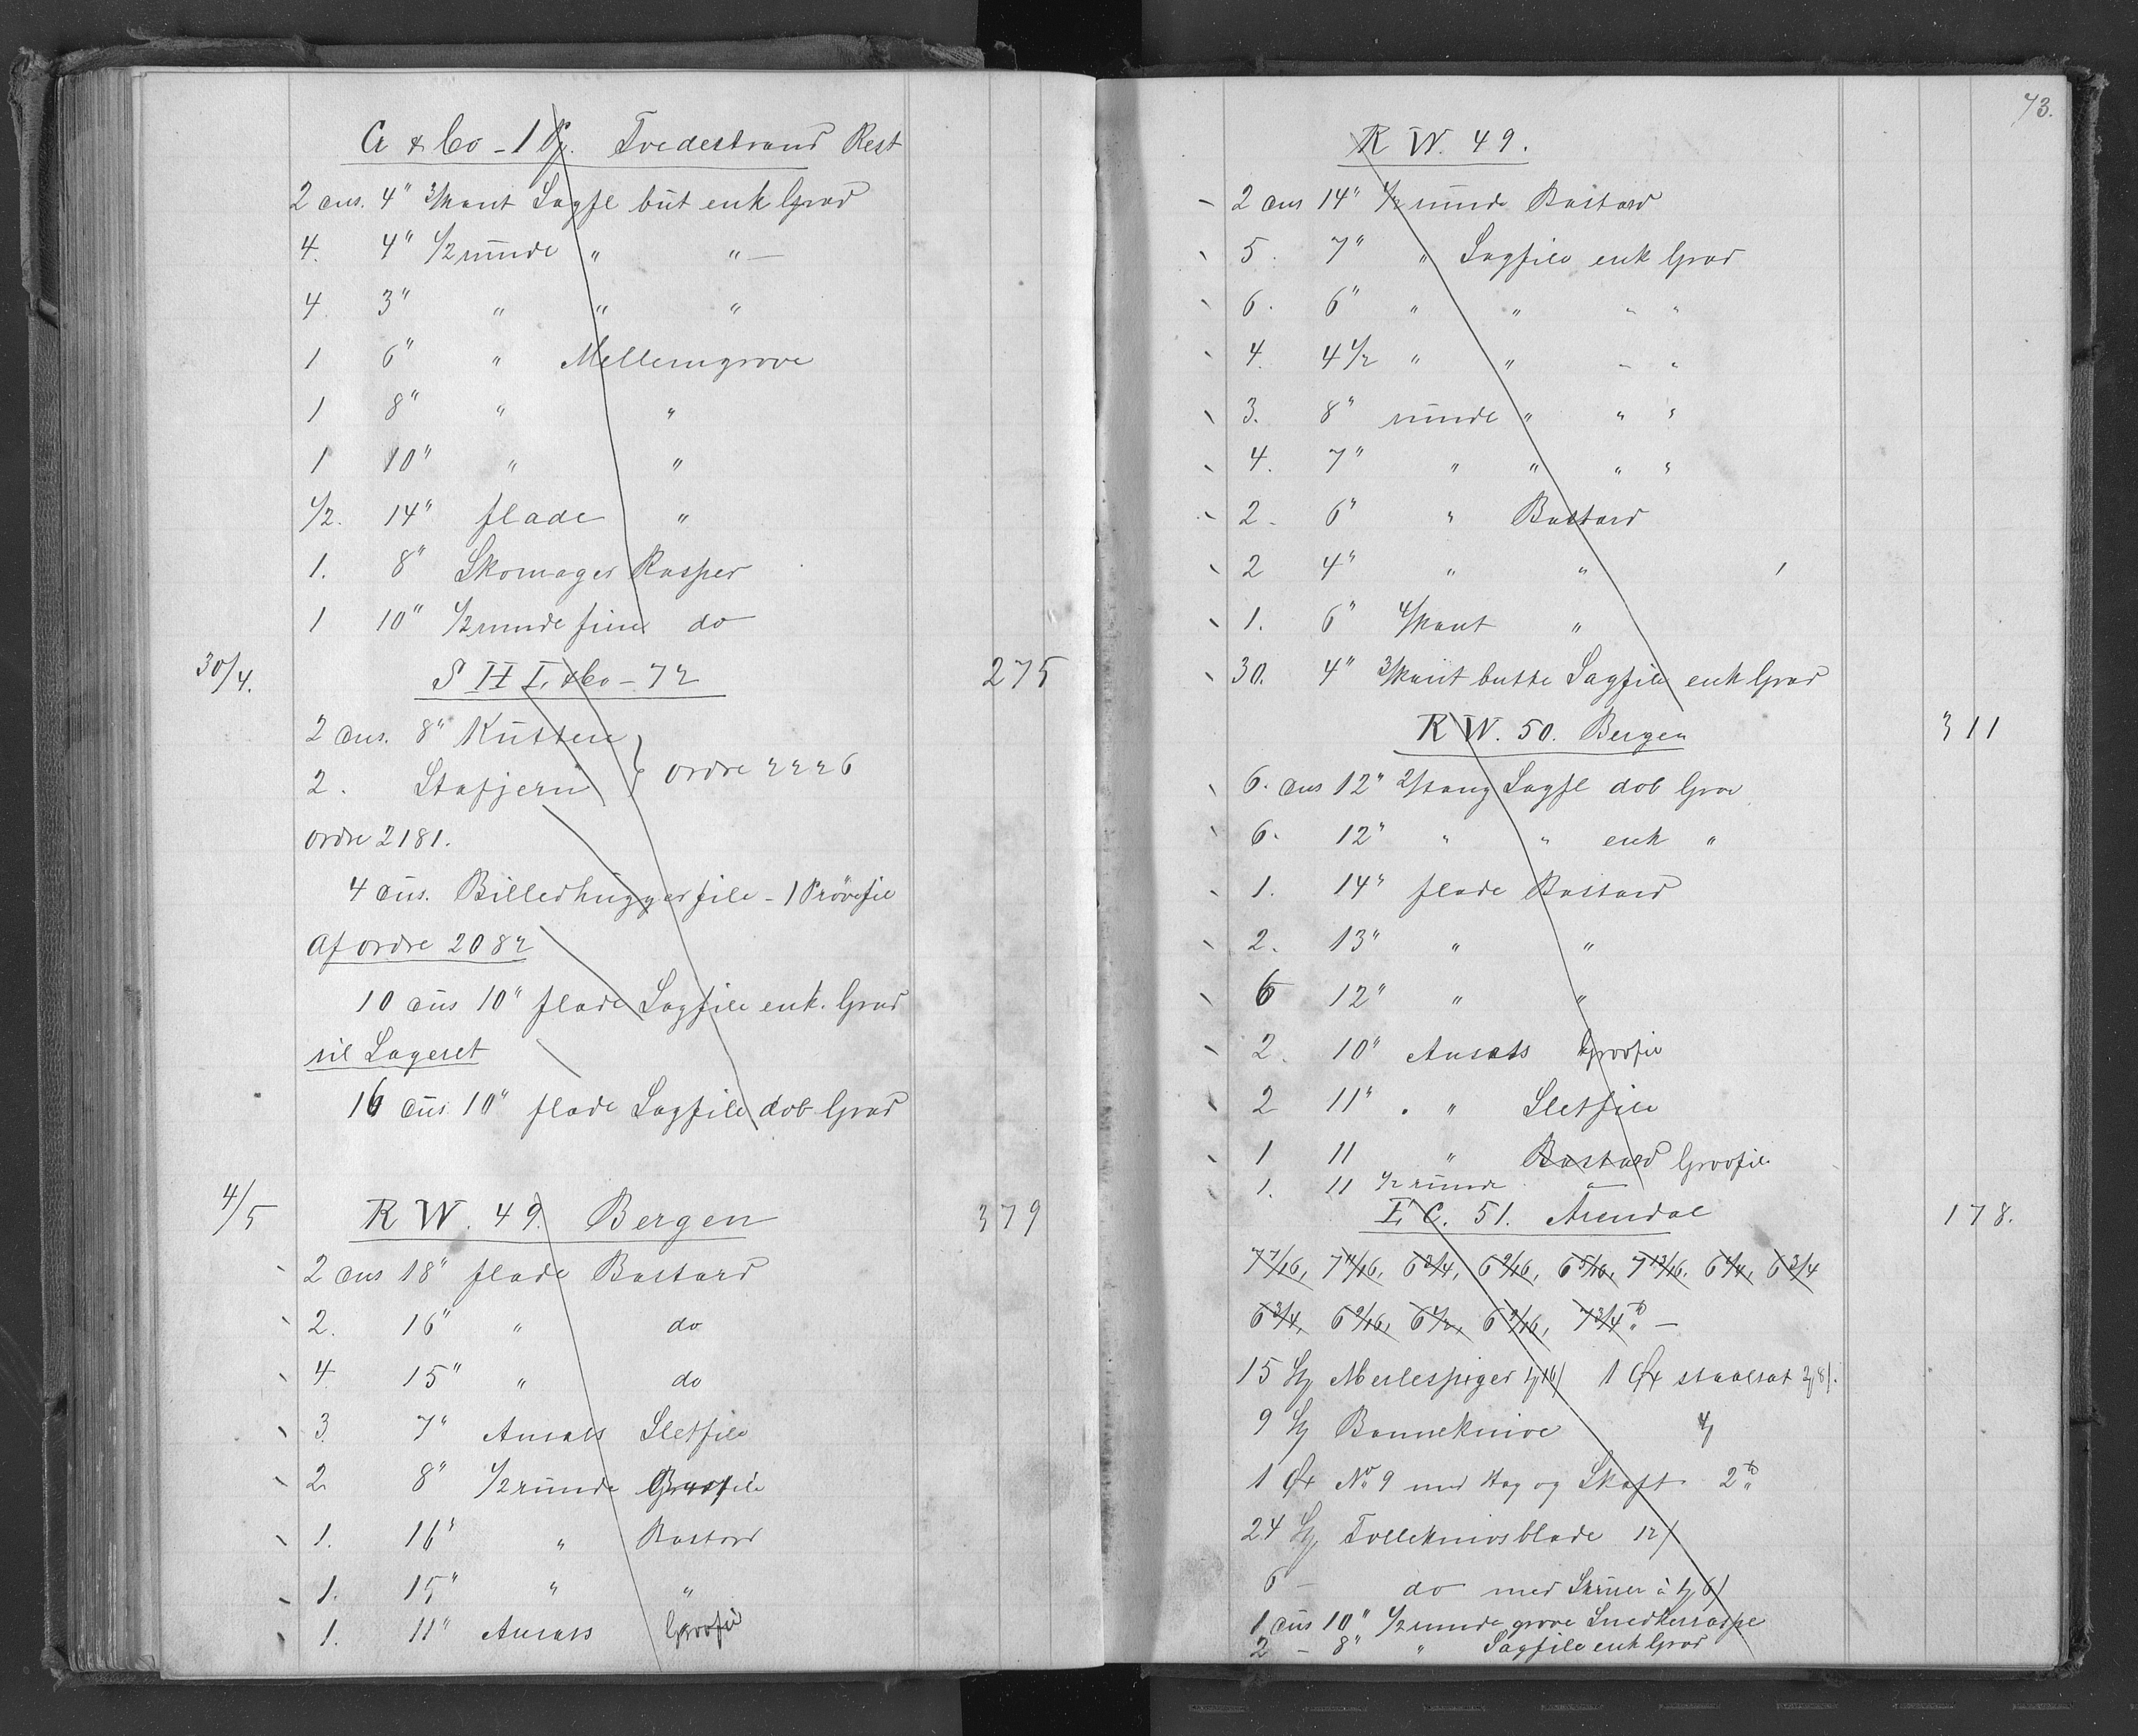 G & Co - 1 Tvedestrand Rest
2 dus. 4" 3/kant Sagfl but enk Grad
4. 4" 1/2 runde " " —
4 3" " " "
1 6" " Mellemgrove
1 8" " "
1 10" " "
1/2. 14" flade "
1. 8" Skomager Rasper
1 10" 1/2 runde fine do
30/4. S H L & Co - 72 275
2 dus. 8" Kuttere
2. Stafjern } ordre 2226
ordre 2181.
4 dus. Billedhuggerfile - 1 Prøvefil
Af ordre 2082
10 dus 10" flade Sagfile enk. Grad
til Lageret
16 dus 10" flade Sagfile dob Grad
4/5 R W. 49. Bergen 379
2 dus 18" flade Bastard
2. 16" " do
4 15" " do
3. 7" Ansats Sletfile
2 8" 1/2 runde Grovfile
1. 16" " Bastard
1. 15" " "
1. 11" Ansats Grovfil
73.
R W. 49.
2 dus 14" 1/2 runde Bastard
5. 7" " Sagfile enk Grad
6. 6" " " " "
4. 4 1/2 " " " "
3. 8" runde " " "
4. 7" " " " "
2 - 6" " Bastard
2 4" " "
1. 6" 4/kant "
30. 4" 3/kant butte Sagfile enk Grad
R W. 50. Bergen 311
6. dus 12" 2/tang Sagfl dob Grad
6. 12" " " enk "
1. 14" flade Bastard
2. 13" " "
6 12" " "
2. 10" Ansats Grovfil
2 11" " Sletfile
1 11 " Bastard Grovfile
1. 11 1/2 runde "
L C. 51. Arendal 178.
7 7/16, 7 11/16, 6 3/4, 6 9/16, 6 5/16, 7 13/16, 6 1/4, 6 3/4
6 3/4, 6 9/16, 6 1/2, 6 9/16, 7 3/4 " —
15 Merlespiger 1 Øx staalsat
9 Bonneknive
1 Øx No 9 med Hag og Skaft 2
24 Tolleknivsblade 12/
6 — do med Skruer à
1 dus 10" 1/2 runde grove Snedkerraspe
2 — 8" " Sagfile enk Grad